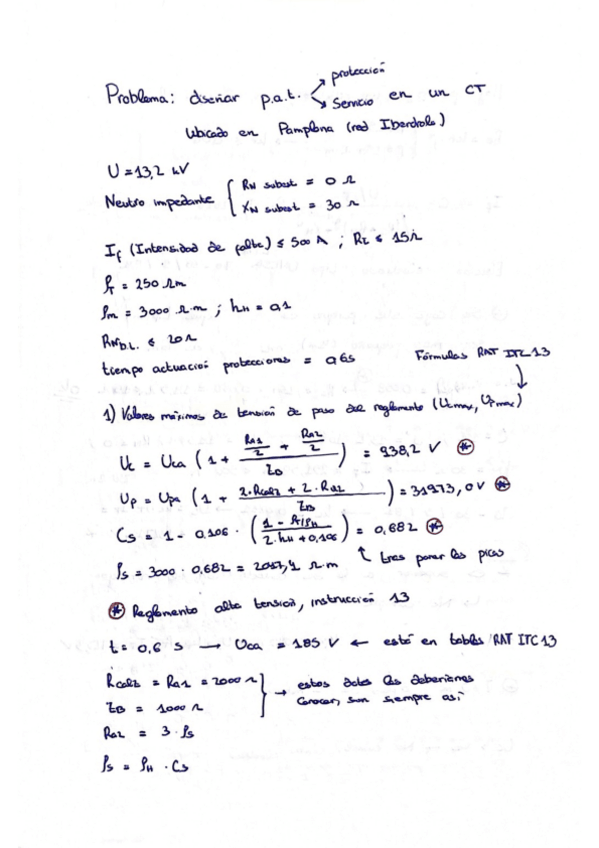 Problema: diseñar p.a.t. → protección
→ Servicio en un CT
ubicado en Pamplona (red Iberdrola)
U = 13,2 kV
Neutro impedante { RN subest = 0 Ω
XN subest = 30 Ω
If (Intensidad de falta) ≤ 500 A ; Rt ≤ 15 Ω
ρT = 250 Ω m
ρm = 3000 Ω·m ; hH = 0,1
RN B.L. ≤ 20 Ω
tiempo actuación protecciones = 0,6s
Fórmulas RAT ITC 13
1) Valores máximos de tensión de paso del reglamento (Ucmax, Upmax)
Uc = Uca (1 + (Ra1/2 + Ra2/2) / ZB) = 938,2 V *
Up = Upa (1 + (2·Rcalz + 2·Ra2) / ZB) = 31973,0 V *
Cs = 1 - 0,106 · ((1 - ρT/ρH) / (2·hH + 0,106)) = 0,682 *
ρs = 3000 · 0,682 = 2047,4 Ω·m ↑ tras poner las picas
* Reglamento alta tensión, instrucción 13
t = 0,6 s → Uca = 185 V ← está en tablas RAT ITC 13
Rcalz = Ra1 = 2000 Ω } → estos datos los deberíamos
ZB = 1000 Ω conocer, son siempre así
Ra2 = 3·ρs
ρs = ρH · Cs